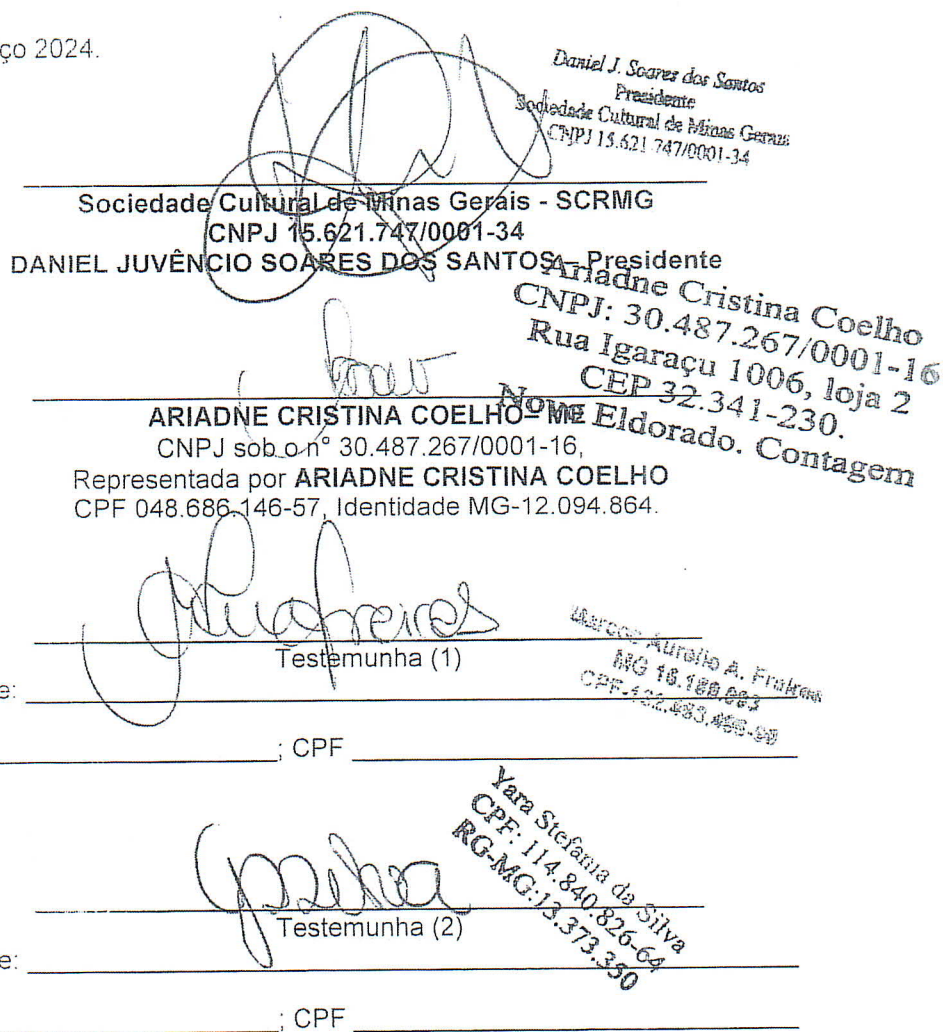 ço 2024.
Daniel J. Soares dos Santos
Presidente
Sociedade Cultural de Minas Gerais
CNPJ 15.621.747/0001-34
Sociedade Cultural de Minas Gerais - SCRMG
CNPJ 15.621.747/0001-34
DANIEL JUVÊNCIO SOARES DOS SANTOS – Presidente
Ariadne Cristina Coelho
CNPJ: 30.487.267/0001-16
Rua Igaraçu 1006, loja 2
CEP 32.341-230.
Novo Eldorado. Contagem
ARIADNE CRISTINA COELHO - ME
CNPJ sob o n° 30.487.267/0001-16,
Representada por ARIADNE CRISTINA COELHO
CPF 048.686.146-57, Identidade MG-12.094.864.
Testemunha (1)
Aurélio A.
MG
CPF
e:
; CPF
Yara Stefania da Silva
CPF: 114.840.826-64
RG-MG:13.373.350
Testemunha (2)
e:
; CPF